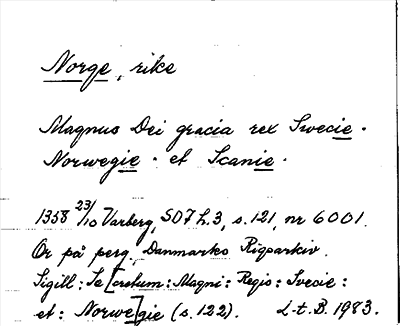 Norge, rike
Magnus Dei gracia rex Swecie ·
Norwegie · et Scanie ·
1358 23/10 Varberg, SD7 h.3, s.121, nr 6001.
Or på perg. Danmarks Rigsarkiv.
Sigill: Se[cretum: Magni: Regis: Svecie:
et: Norwe]gie (s.122). L-t. B. 1983.